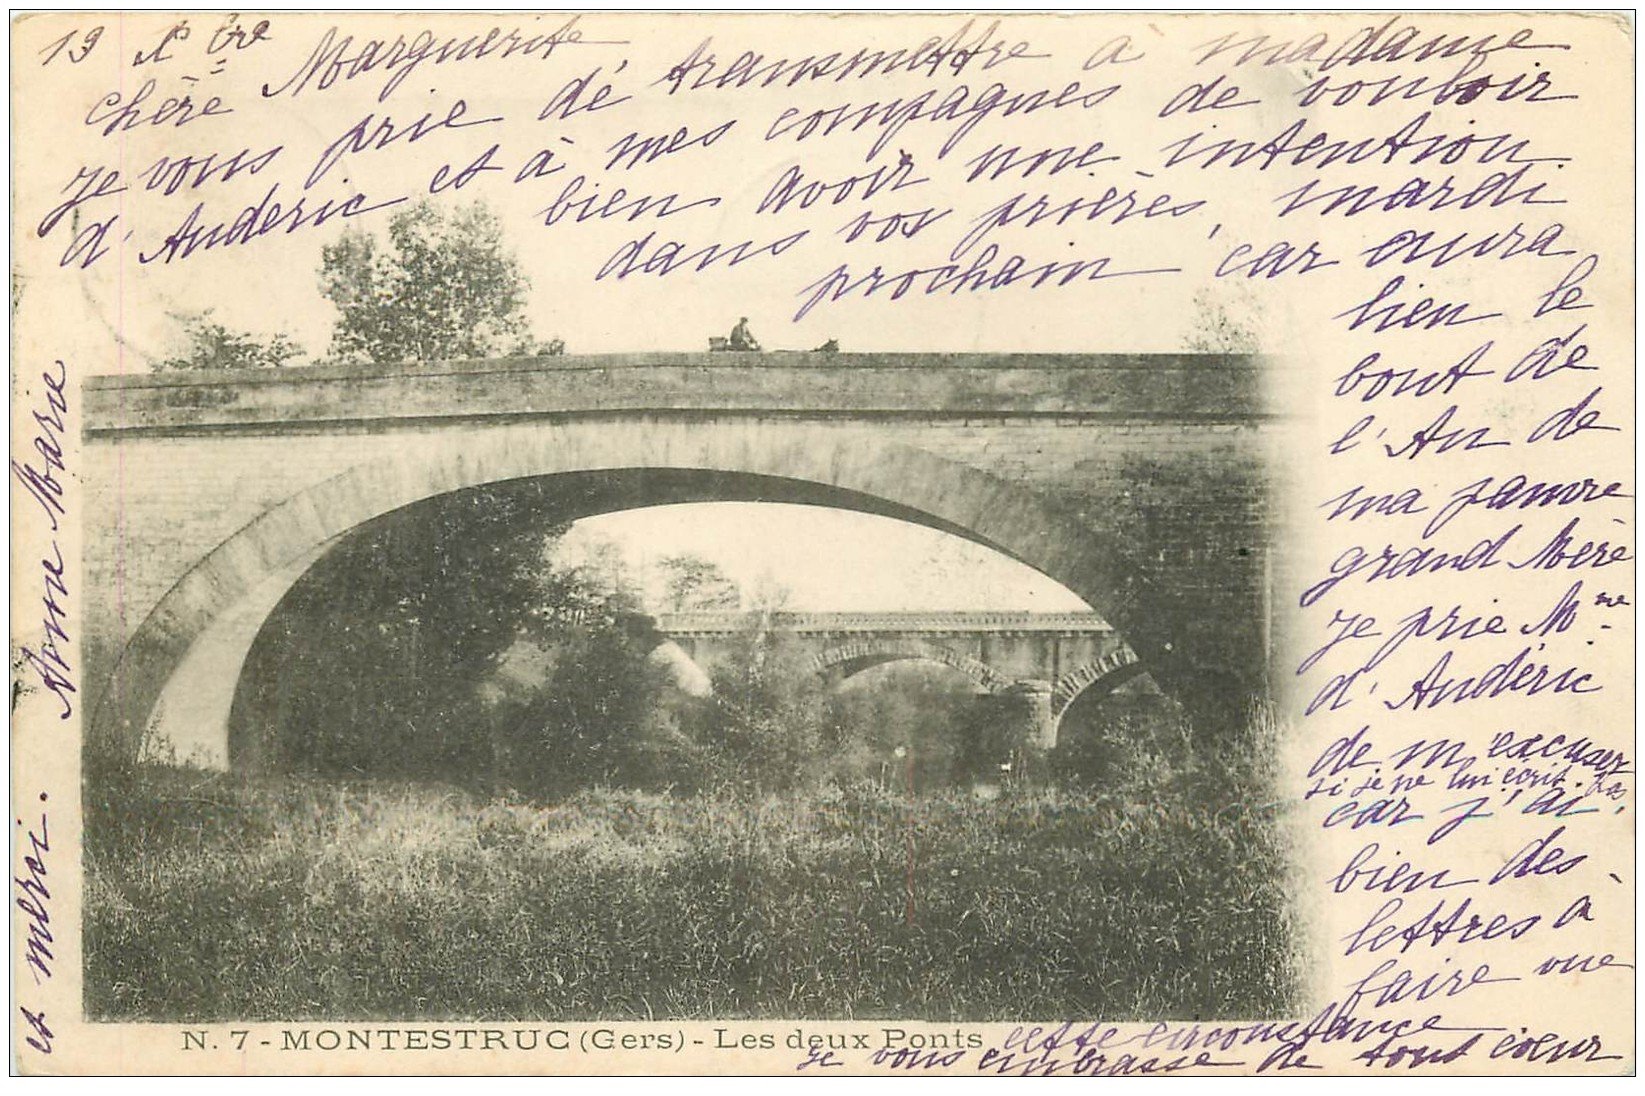 19 Xbre
Chère Marguerite,
Je vous prie de transmettre à madame
d'Auderic et à mes compagnes de vouloir
bien avoir une intention
dans vos prières, mardi
prochain car aura
lieu le
bout de
l'An de
ma pauvre
grand Mère
je prie Mme
d'Audéric
de m'excuser
si je ne lui écrit pas,
car j'ai
bien des
lettres à
faire vue
cette circonstance
je vous embrasse de tout coeur
et merci. Anne Marie
N. 7 - MONTESTRUC (Gers) - Les deux Ponts